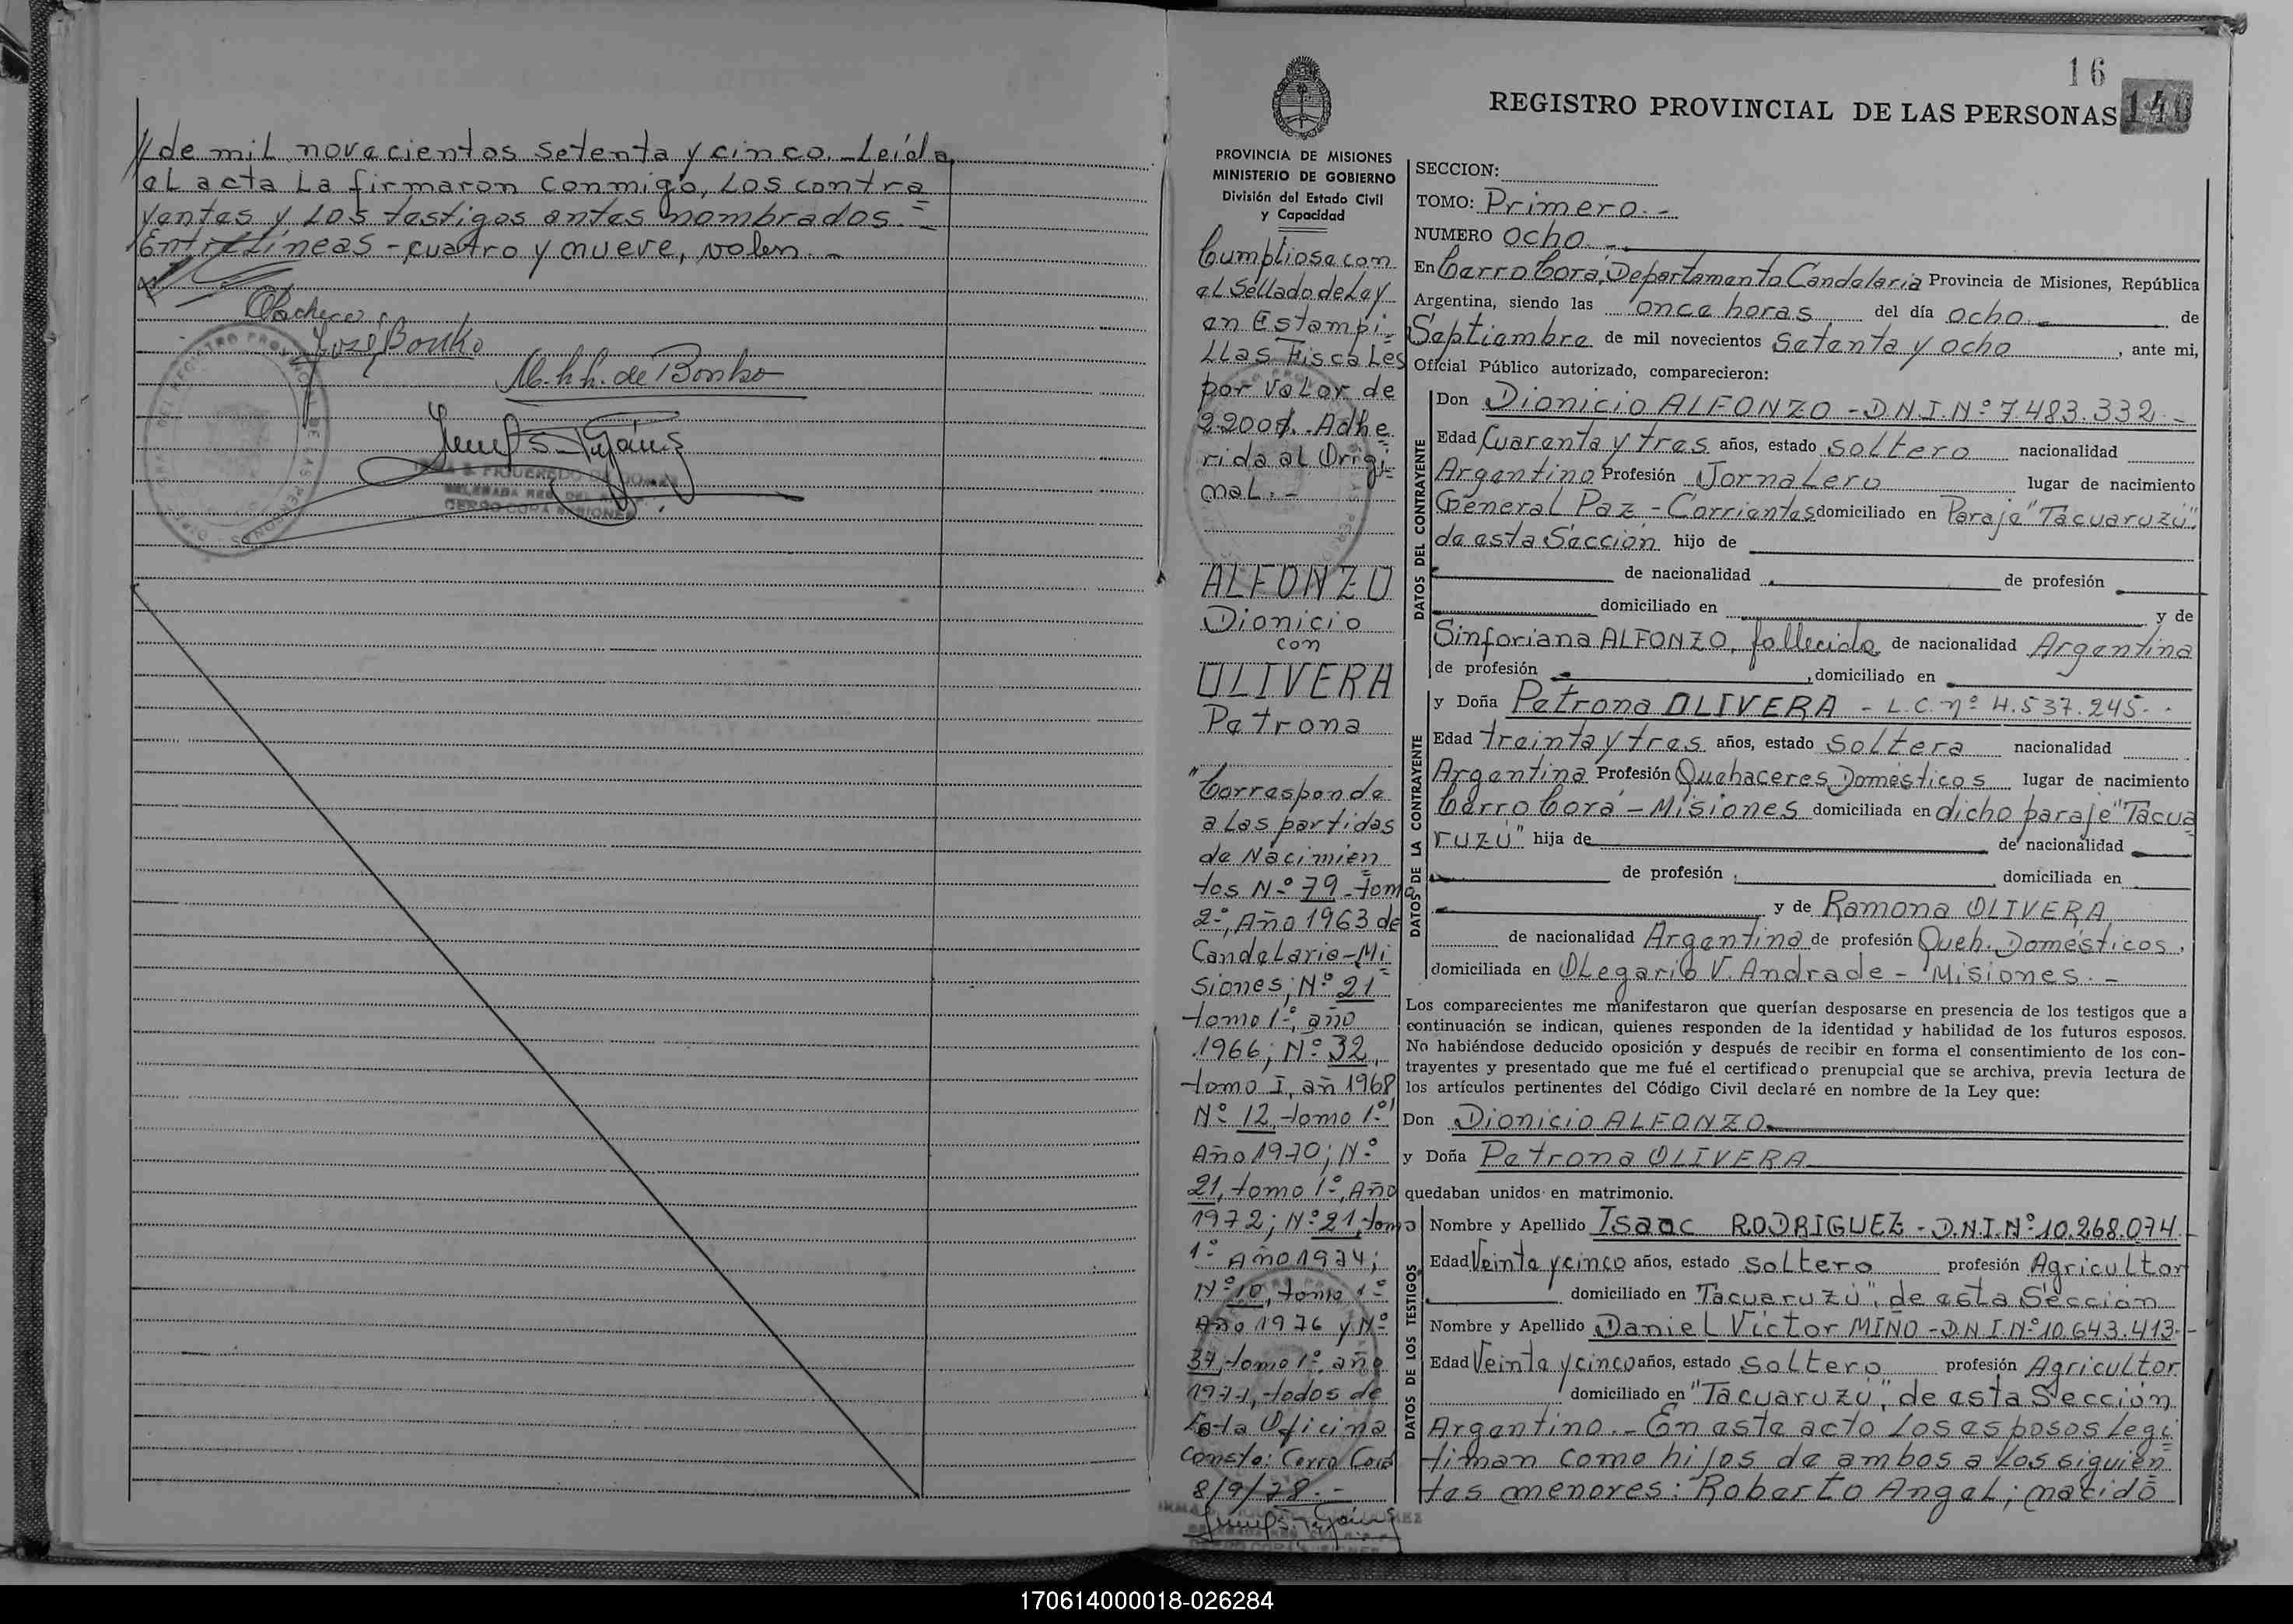 // de mil novecientos setenta y cinco.- Leída
el acta la firmaron conmigo, los contra
yentes y los testigos antes nombrados.-
Entrelíneas - cuatro y nueve, valen.-
Pacheco
José Bonko
M. h h. de Bonko
CERRO CORA MISIONES
16
140
REGISTRO PROVINCIAL DE LAS PERSONAS
PROVINCIA DE MISIONES
MINISTERIO DE GOBIERNO
División del Estado Civil
y Capacidad
Cumpliose con
el Sellado de Ley
en Estampi=
llas Fiscales
por valor de
2200$. Adhe
rida al Origi=
nal.-
ALFONZO
Dionicio
con
OLIVERA
Petrona
"Corresponde
a las partidas
de Nacimien
tos N° 79 - tomo
2°, Año 1963 de
Candelaria-Mi
siones; N° 21
tomo 1°, año
1966; N° 32,
tomo I, añ 1968
N° 12, tomo 1°
Año 1970; N°
21, tomo 1°, Año
1972; N° 21, tomo
1° Año 1974;
N° 10, tomo 1°
Año 1976 y N°
37, tomo 1°, año
1977, todos de
Esta Oficina
Conste: Cerro Corá
8/9/78.-
SECCION:
TOMO: Primero.-
NUMERO ocho.-
En Cerro Corá, Departamento Candelaria Provincia de Misiones, República
Argentina, siendo las once horas del día ocho de
Septiembre de mil novecientos Setenta y ocho, ante mi,
Oficial Público autorizado, comparecieron:
DATOS DEL CONTRAYENTE
Don Dionicio ALFONZO - D.N.I. N° 7.483.332.-
Edad Cuarenta y tres años, estado soltero nacionalidad
Argentino Profesión Jornalero lugar de nacimiento
General Paz - Corrientes domiciliado en Paraje "Tacuaruzú"
de esta Sección hijo de
de nacionalidad de profesión
domiciliado en y de
Sinforiana ALFONZO, fallecida de nacionalidad Argentina
de profesión , domiciliado en
DATOS DE LA CONTRAYENTE
y Doña Petrona OLIVERA - L.C. n° 4.537.245.-
Edad treinta y tres años, estado soltera nacionalidad
Argentina Profesión Quehaceres Domésticos lugar de nacimiento
Cerro Corá - Misiones domiciliada en dicho paraje "Tacua
ruzú" hija de de nacionalidad
de profesión , domiciliada en
y de Ramona OLIVERA
de nacionalidad Argentina de profesión Queh. Domésticos,
domiciliada en Olegario V. Andrade - Misiones.-
Los comparecientes me manifestaron que querían desposarse en presencia de los testigos que a
continuación se indican, quienes responden de la identidad y habilidad de los futuros esposos.
No habiéndose deducido oposición y después de recibir en forma el consentimiento de los con-
trayentes y presentado que me fué el certificado prenupcial que se archiva, previa lectura de
los artículos pertinentes del Código Civil declaré en nombre de la Ley que:
Don Dionicio ALFONZO
y Doña Petrona OLIVERA
quedaban unidos en matrimonio.
DATOS DE LOS TESTIGOS
Nombre y Apellido Isaac RODRIGUEZ - D.N.I. N° 10.268.074.-
Edad Veinte y cinco años, estado soltero profesión Agricultor
domiciliado en "Tacuaruzú", de esta Sección
Nombre y Apellido Daniel Víctor MIÑO - D.N.I. N° 10.643.413.-
Edad Veinte y cinco años, estado soltero profesión Agricultor
domiciliado en "Tacuaruzú", de esta Sección
Argentino.- En este acto los esposos legi
timan como hijos de ambos a los siguien
tes menores: Roberto Angel; nacido
170614000018-026284